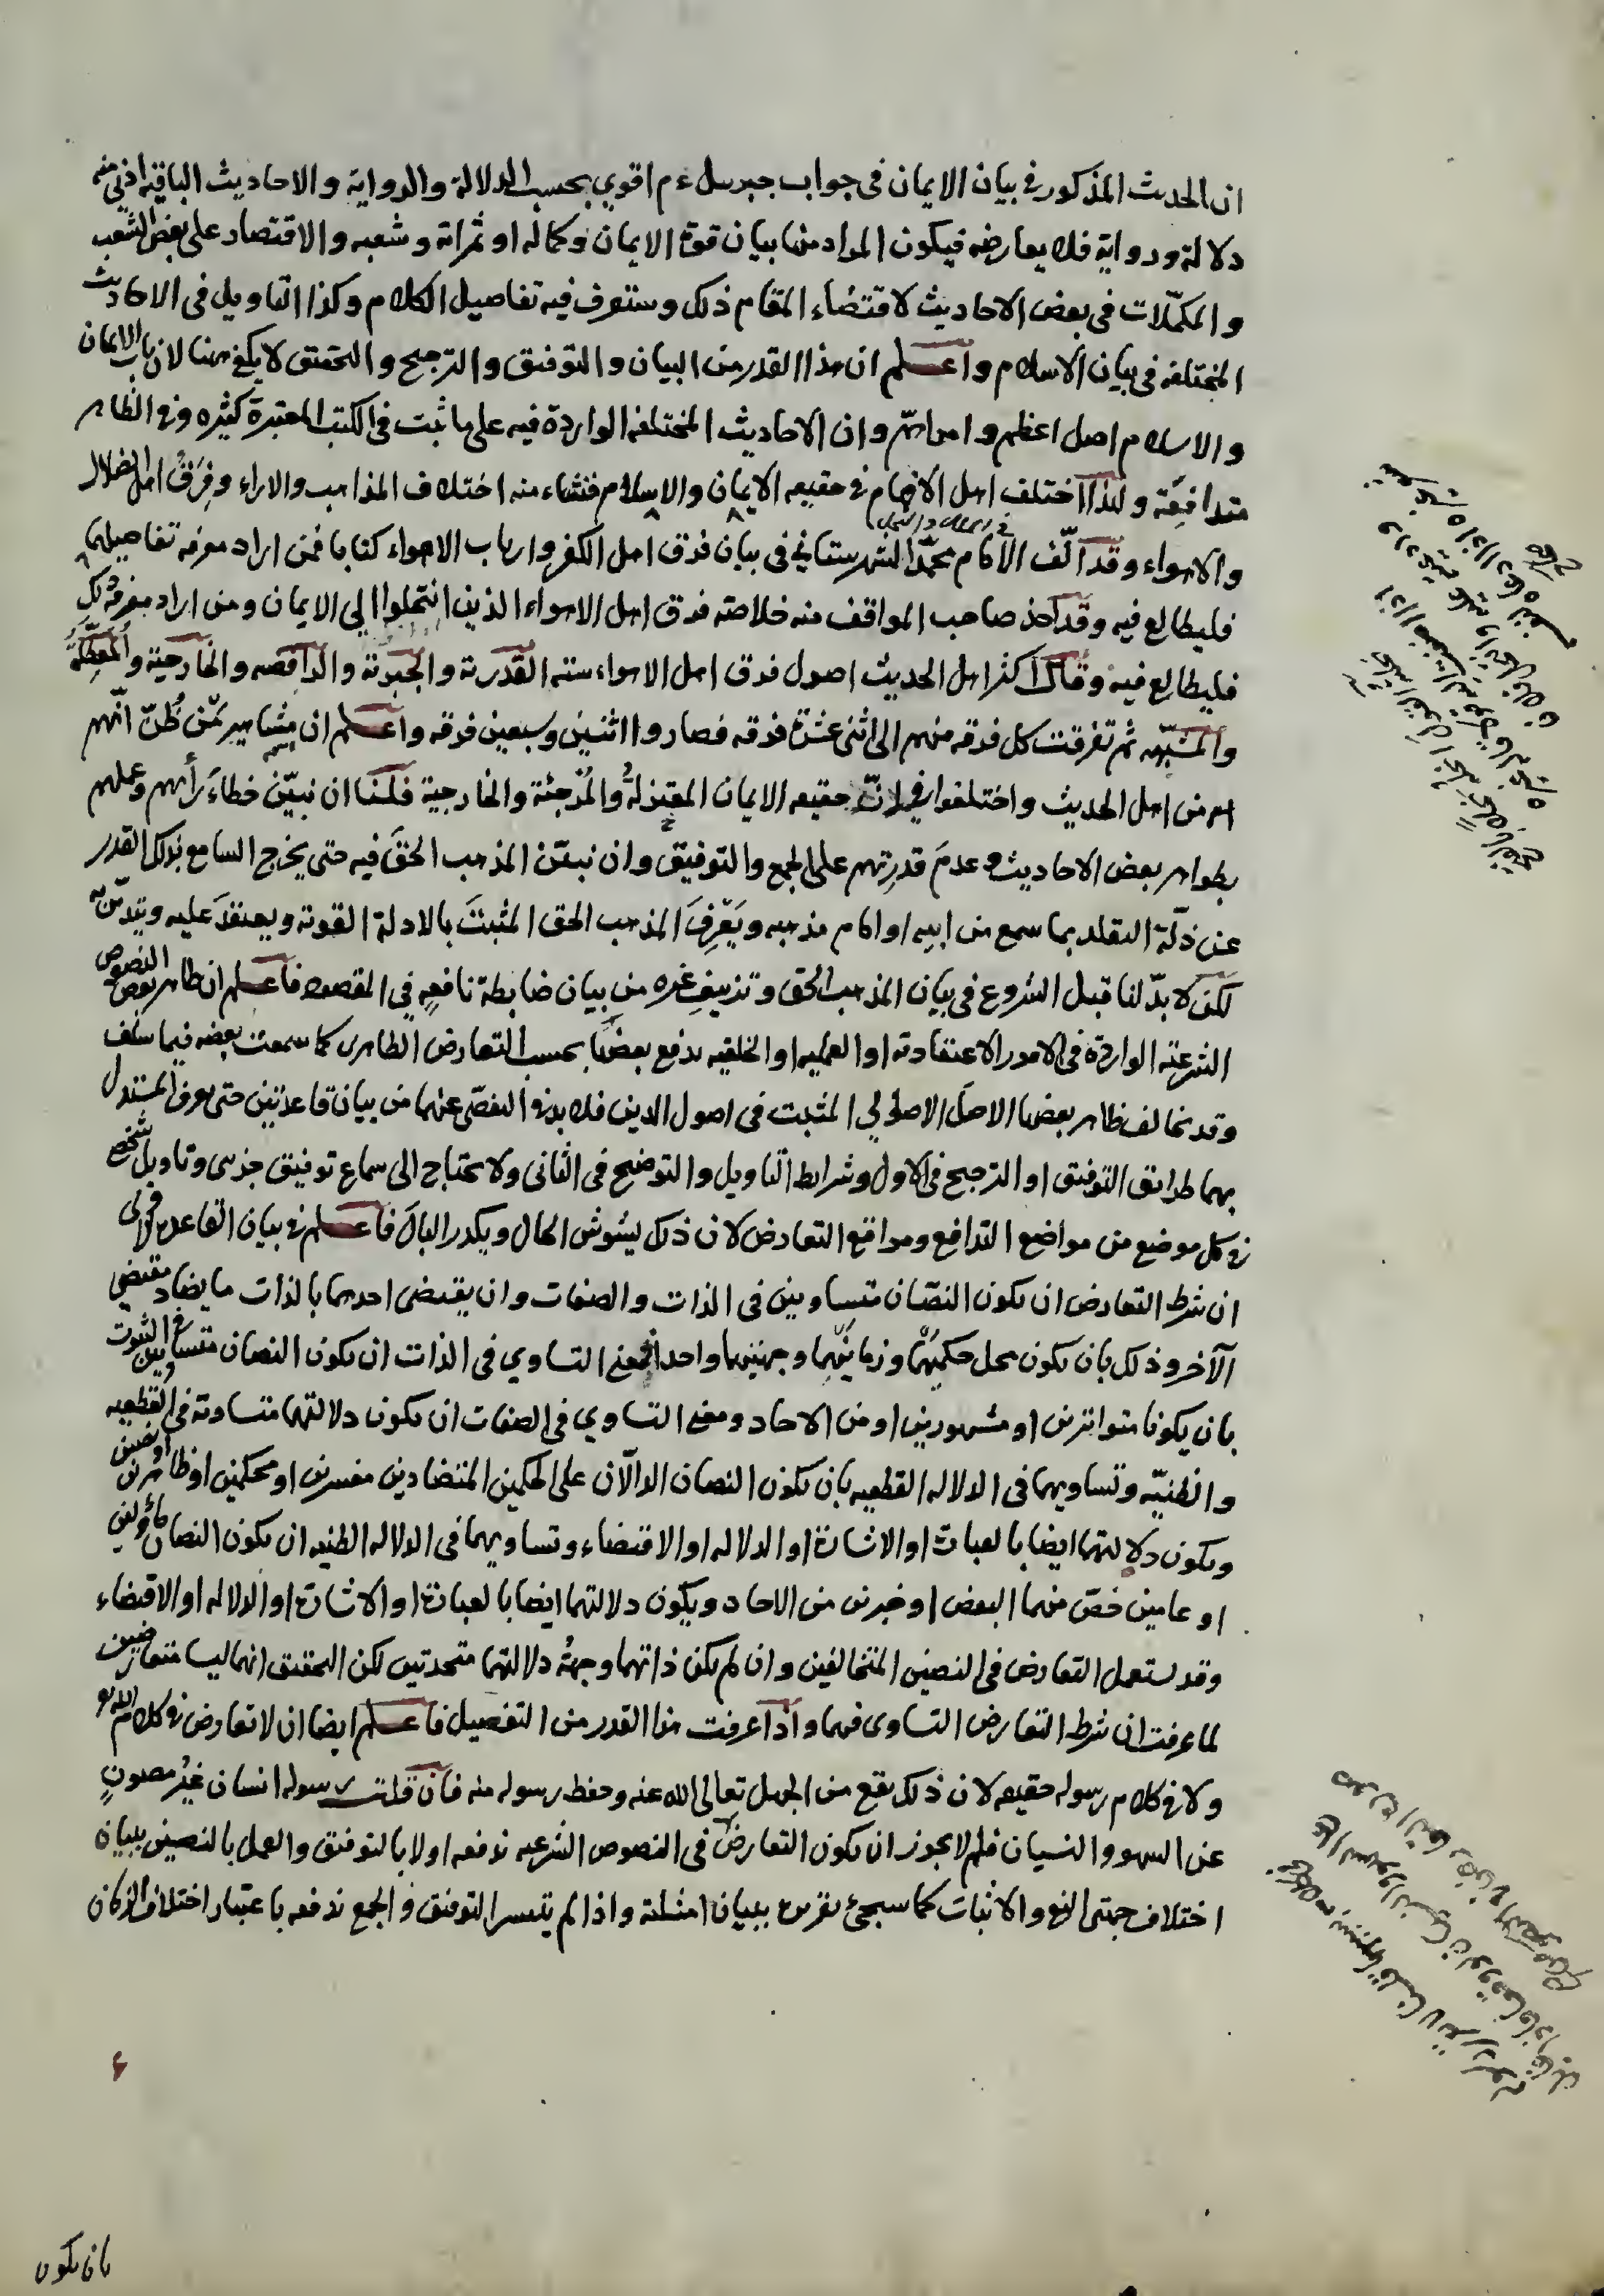 ان الحديث المذكور في بيان الايمان في جواب جبريل ء م اقوي بحسب الدلالة والرواية والاحاديث الباقية ادني منه
دلالة ورواية فلا يعارضه فيكون المراد منها بيان قوة الايمان وكماله او ثمراته وشعبه والاقتصار على بعض الشعب
والمكمّلات في بعض الاحاديث لاقتضاء المقام ذلك وستعرف فيه تفاصيل الكلام وكذا التاويل في الاحاديث
المختلفة في بيان الاسلام واعلم ان هذا القدر من البيان والتوفيق والترجيح والتحقيق لا يكفي هنا لان باب الايمان
والاسلام اصل اعظم وامر اهمّ وان الاحاديث المختلفة الواردة فيه على ما ثبت في الكتب المعتبرة كثيره وفي الظاهر
متدافِعَة ولهذا اختلف اهل الافهام في حقيقه الايمان والاسلام فنشاء منه اختلاف المذاهب والاراء وفِرَقُ اهل الضلال
والاهواء وقد الّف الامام محمّد الشهرستاني في الملل والنحل في بيان فرق اهل الكفر وارباب الاهواء كتابا فمن اراد معرفه تفاصيلهما
فليطالع فيه وقد اخذ صاحب المواقف منه خلاصته فرق اهل الاهواء الذين انتحلوا الي الايمان ومن اراد معرفة تلك
فليطالع فيه وقال اكثر اهل الحديث اصول فرق اهل الاهواء سته القدرية والجبرية والرافضه والخارجية والمعطّلة
والمشبّهه ثم تفرقت كل فرقه منهم الى اثنى عشرة فرقه فصاروا اثنين وسبعين فرقه واعلم ان مشاهير ممّن ظُنّ انّهم
هم من اهل الحديث واختلفوا في حقيقه الايمان المعتزلةُ والمُرْجئة والخارجية فلنا ان نبيّن خطاءَ رأيهم وعملهم
بظواهر بعض الاحاديث وعدمَ قدرتهم على الجمع والتوفيق وان نبيّن المذهب الحقَ فيه حتى يخرج السامع بذلك القدر
عن ذلّة التقليد بما سمع من ابيه او امام مذهبه ويَعْرِفَ المذهب الحق المثبتَ بالادلة القوية ويعتقدَ عليه ويتديّن به
لكن لا بدّ لنا قبل الشروع في بيان المذهب الحق وتزييف غيره من بيان ضابطة نافعةٍ في المقصود فاعلم ان ظاهر بعض النصوص
الشرعيّه الواردة في الامور الاعتقادية او العمليه او الخلقيه يدفع بعضُها بحسب التعارض الظاهرى كما سمعت بعضه فيما سلف
وقد يخالف ظاهر بعضها الاصلَ الاصولي المثبت في اصول الدين فلا بد في التفصّي عنهما من بيان قاعدتين حتى يعرف المستدل
بهما طرائق التوفيق او الترجيح في الاول وشرايط التاويل والتوضيح في الثانى ولا يحتاج الى سماع توفيق جزىى وتاويل شخصي
في كل موضع من مواضع التدافع ومواقع التعارض لان ذلك يشوش الحال ويكدر البالَ فاعلم في بيان القاعدة الاولى
ان شرط التعارض ان يكون النصّان متساويين في الذات والصفات وان يقتضى احدهما بالذات ما يضادّ مقتضي
الآخر وذلك بان يكون محل حكميْهما وزمانيْهما وجهتيهما واحدا فمعني التساوي في الذات ان يكون النصان متساويين في الثبوت
بان يكونا متواترين او مشهورين او من الاحاد ومعنى التساوي في الصفات ان يكون دلالتهما متساوية في القطعيه
والظنيّه وتساويهما في الدلاله القطعيه بان يكون النصان الدالّان على الحكمين المتضادين مفسرين او محكمين او ظاهرين او نصين
ويكون دلالتهما ايضا بالعبارة او الاشارة او الدلاله او الاقتضاء وتساويهما في الدلاله الظنيه ان يكون النصان مأولين
او عامين خصّ منهما البعض او خبرين من الاحاد ويكون دلالتهما ايضا بالعبارة او الاشارة او الدلاله او الاقتضاء
وقد يستعمل التعارض في النصين المتخالفين وان لم يكن ذاتهما وجهةُ دلالتهما متحدتين لكن التحقيق انهما ليسا متعارضين
لما عرفت ان شرط التعارض التساوى فيهما واذا عرفت هذا القدر من التفصيل فاعلم ايضا ان لا تعارض في كلام الله تع
ولا في كلام رسوله حقيقه لان ذلك يقع من الجهل تعالى الله عنه وحفظ رسوله منه فان قلت رسوله انسان غيرُ مصونٍ
عن السهو والنسيان فلم لا يجوز ان يكون التعارض في النصوص الشرعيه ندفعه اولا بالتوفيق والعمل بالنصين ببيان
اختلاف جهتى النفي والاثبات كما سيجئ تقريره ببيان امثلته واذا لم يتيسر التوفيق والجمع ندفعه باعتبار اختلاف الزمان
بان يكون